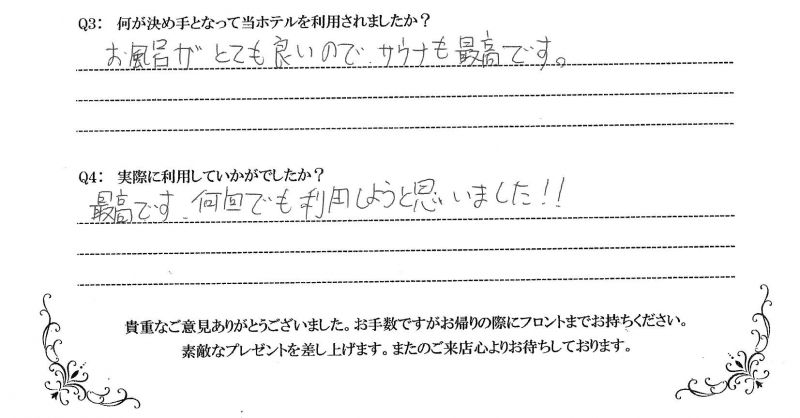 Q3: 何が決め手となって当ホテルを利用されましたか？
お風呂がとても良いので、サウナも最高です。
Q4: 実際に利用していかがでしたか？
最高です、何回でも利用しようと思いました!!
貴重なご意見ありがとうございました。お手数ですがお帰りの際にフロントまでお持ちください。
素敵なプレゼントを差し上げます。またのご来店心よりお待ちしております。